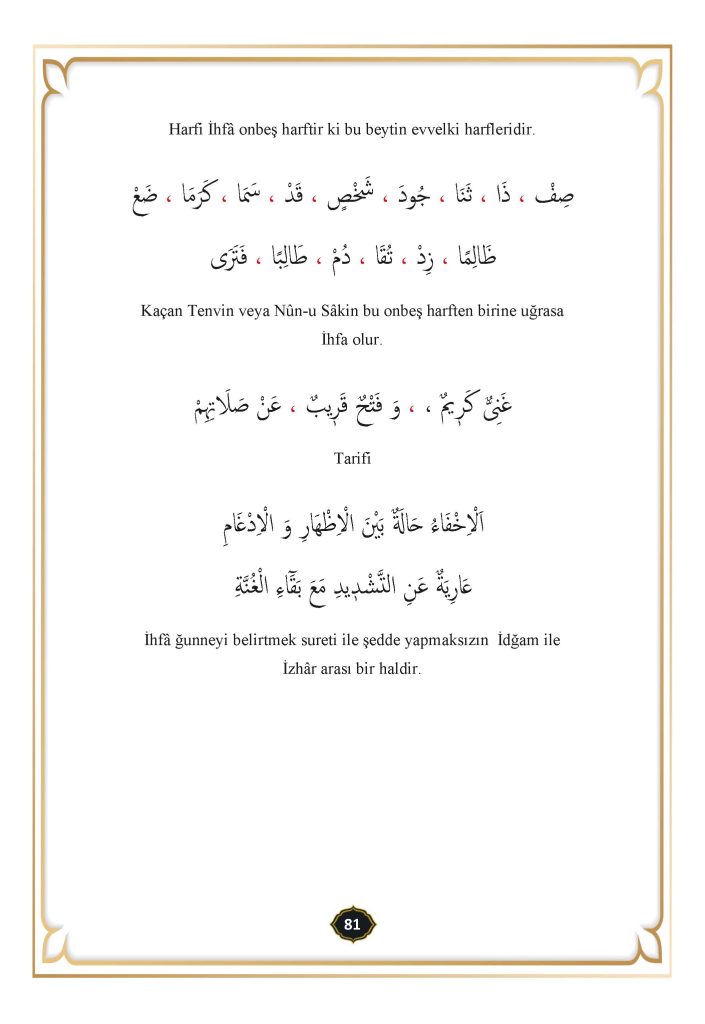 Harfi İhfâ onbeş harftir ki bu beytin evvelki harfleridir.
صِفْ ، ذَا ، ثَنَا ، جُودَ ، شَخْصٍ ، قَدْ ، سَمَا ، كَرَمَا ، ضَعْ
ظَالِمًا ، زِدْ ، تُقَا ، دُمْ ، طَالِبًا ، فَتَرَى
Kaçan Tenvin veya Nûn-u Sâkin bu onbeş harften birine uğrasa
İhfa olur.
غَنِىٌّ كَرِيمٌ ، ، وَ فَتْحٌ قَرِيبٌ ، عَنْ صَلَاتِهِمْ
Tarifi
اَلْاِخْفَاءُ حَالَةٌ بَيْنَ الْاِظْهَارِ وَ الْاِدْغَامِ
عَارِيَةٌ عَنِ التَّشْدٖيدِ مَعَ بَقَٓاءِ الْغُنَّةِ
İhfâ ğunneyi belirtmek sureti ile şedde yapmaksızın İdğam ile
İzhâr arası bir haldir.
81